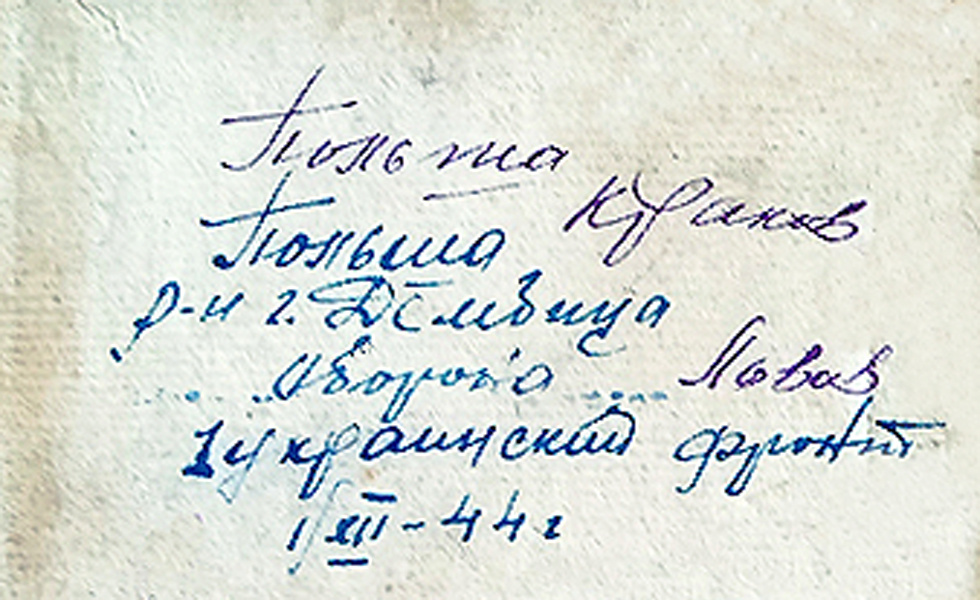 Польша
Краков
Польша
р-н г. Дембица
Оборона Львов
1 Украинский фронт
1/XII-44г